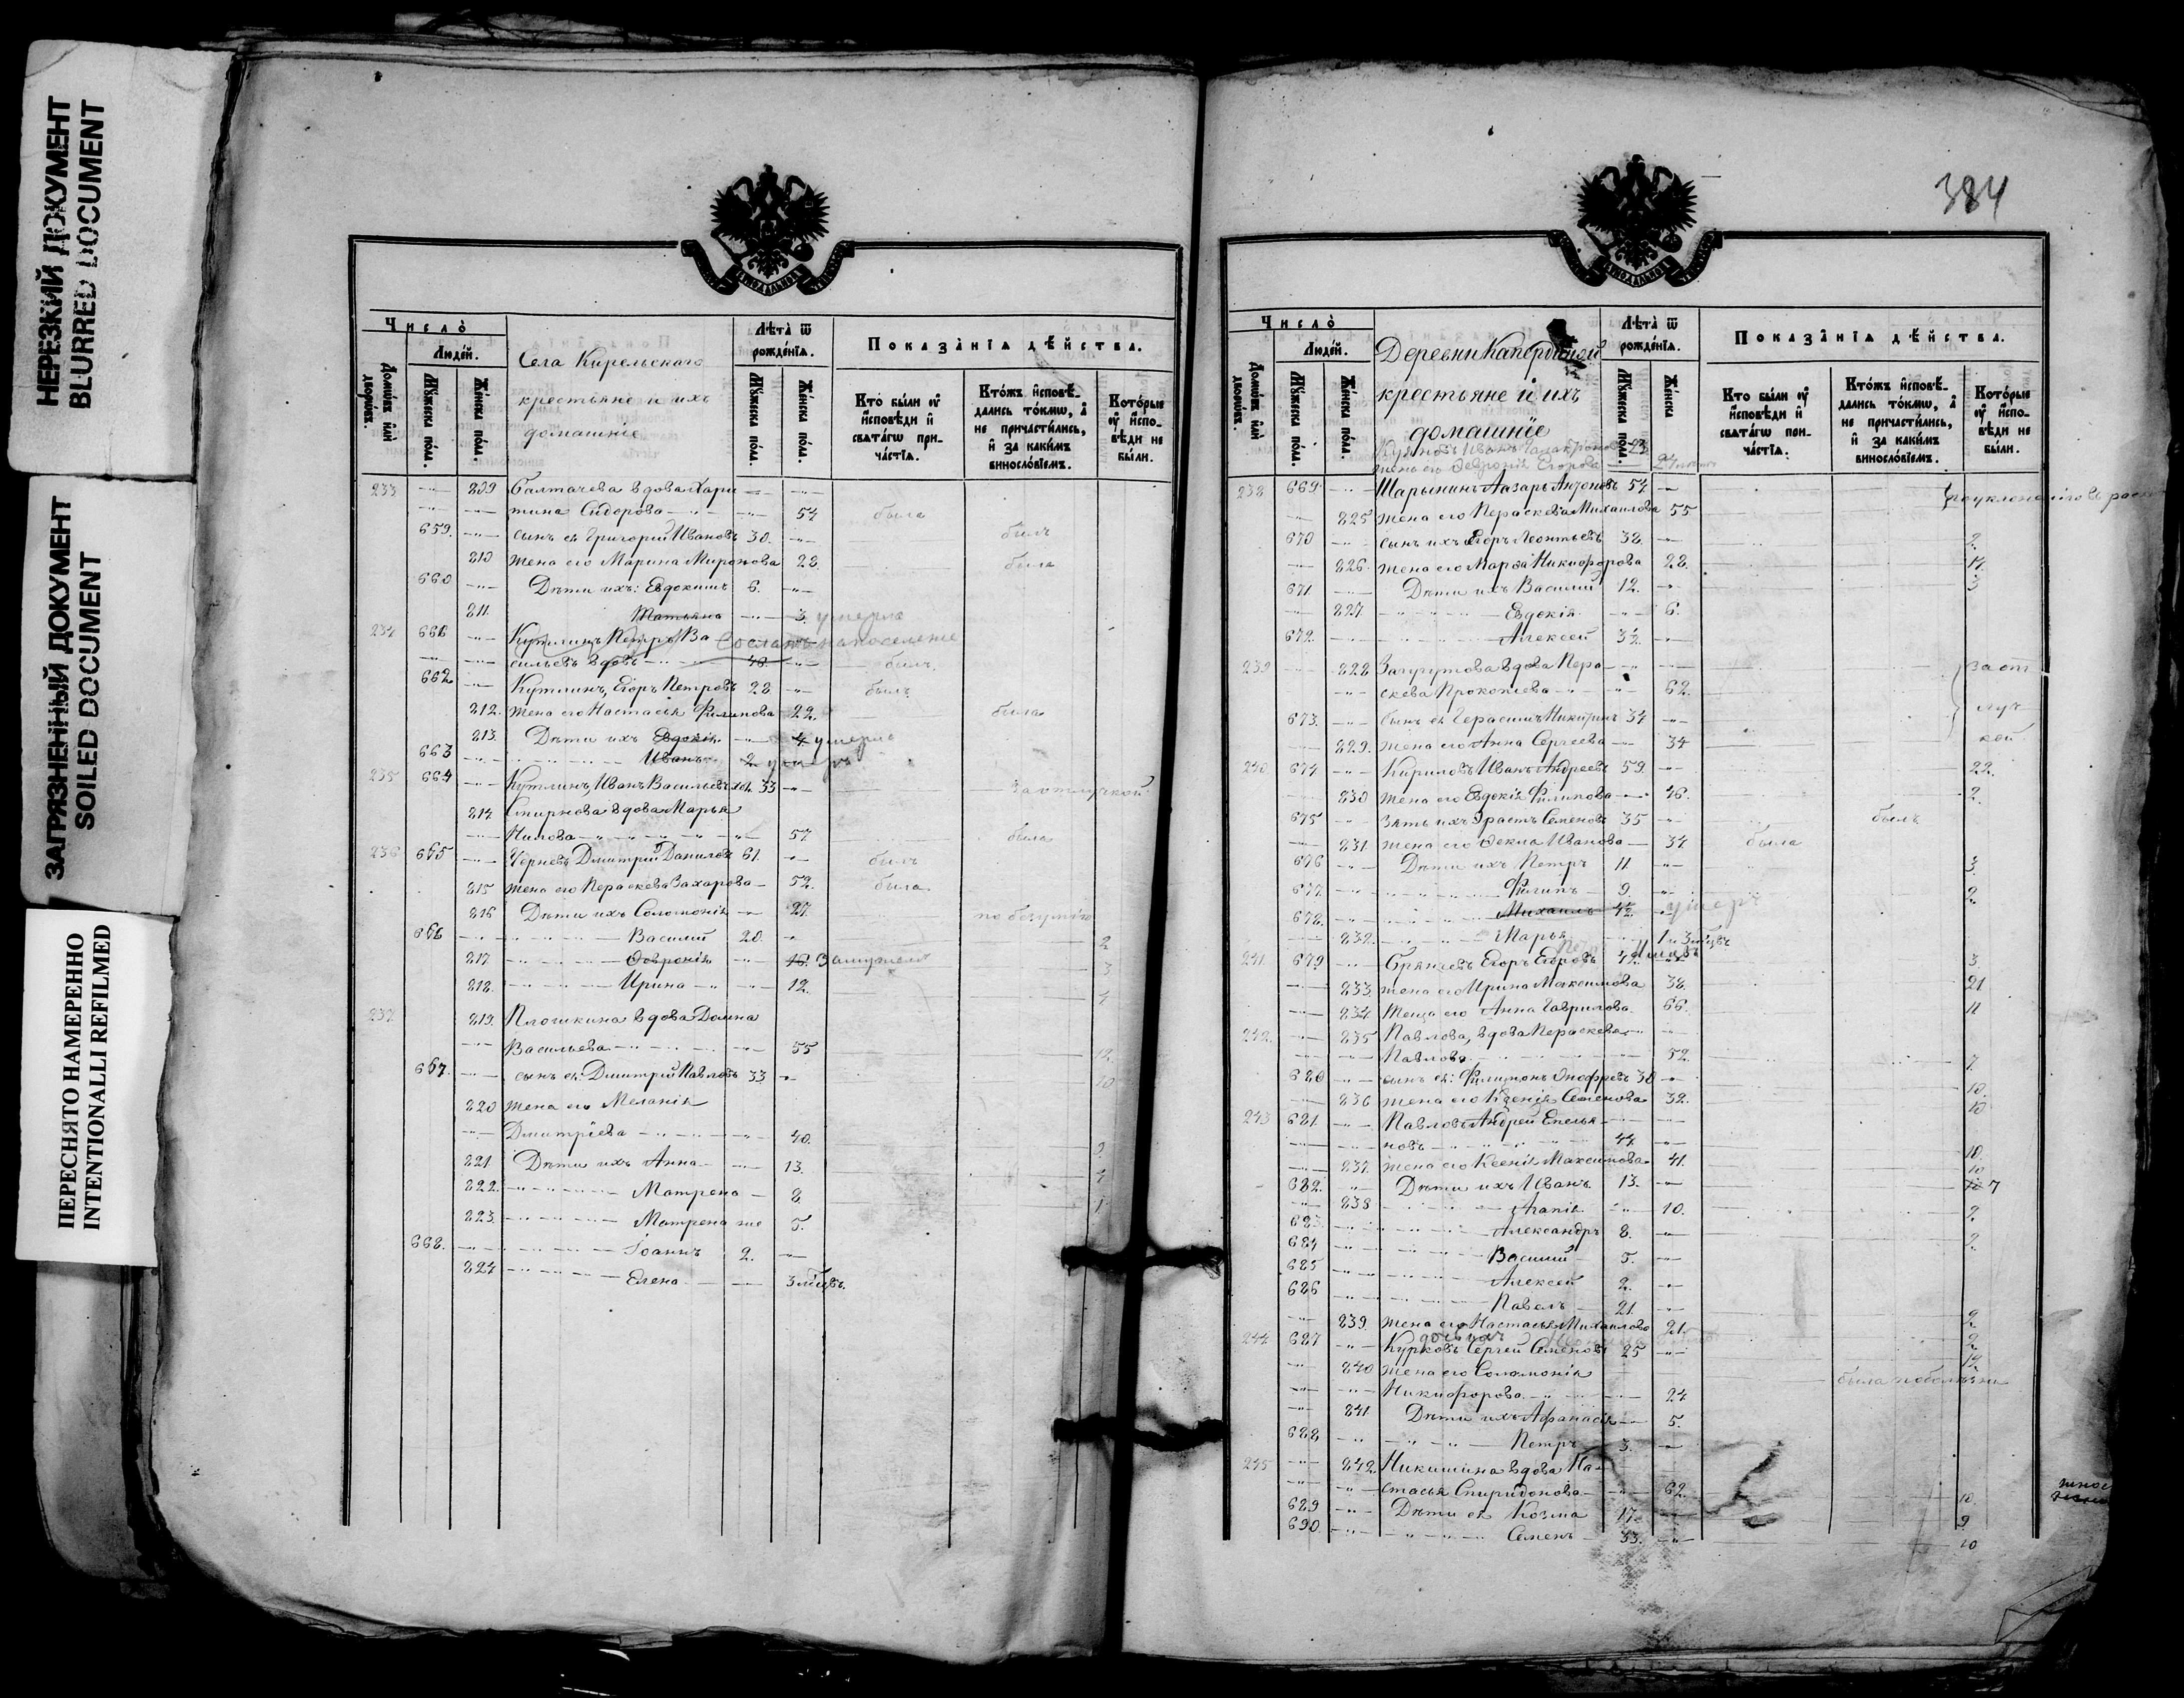 НЕРЕЗКИЙ ДОКУМЕНТ
BLURRED DOCUMENT
ЗАГРЯЗНЕННЫЙ ДОКУМЕНТ
SOILED DOCUMENT
ПЕРЕСНЯТО НАМЕРЕННО
INTENTIONALLI REFILMED
Число̀
Людей.
Домѡвъ илѝ дворѡвъ.
Мꙋжеска пол.
Женска пол.
Села Кирельскаго
крестьяне и ихъ
домашніе
Лѣта̀ ѿ рожденїѧ.
Мꙋжеска пол.
Женска пол.
Показа̑нїѧ дѣ́йства.
Кто были ᲂу҆ исповѣди и свѧтагѡ причастїѧ.
Ктожъ исповѣдались токмѡ, а не причастились, и за какимъ винословїемъ.
Которые ᲂу҆ исповѣди не были.
233 809 Салтачева вдова Хари
тина Сидорова 54 была
659. сынъ ея Григорий Ивановъ 30. былъ
810 жена его Марина Миронова 28. была
660 Дѣти ихъ: Евдокимъ 6.
811. Татьяна 3. умерла
234 661 Кутлинъ Петръ Ва Сосланъ на поселенье
сильевъ вдовъ 48. былъ
662 Кутлинъ, Егоръ Петровъ 28. былъ
812. жена его Настасія Филипова 22. была
813. Дѣти ихъ Евдокія 4 умерла
663 Иванъ 2 умеръ
235 664 Кутлинъ, Иванъ Васильевъ хол. 33 За отлучкой
814 Смирнова вдова Марья
Нилова 57 была
236 665 Черневъ Дмитрій Даниловъ 61. былъ
815 жена его Пераскева Захарова 52. была
816 Дѣти ихъ Соломонія 27. по безумію
666 Василій 20. 2
817 Ѳевронія 16. Замужемъ 3
818. Ирина 12. 4
237 819. Плошкина вдова Домна
Васильева 55 12
667. сынъ ея: Дмитрій Павловъ 33 10
820 жена его Меланія
Дмитріева 40. 9
821 Дѣти ихъ Анна 13. 4
822. Матрена 8 1.
823. Матрена же 5.
668. Іоаннъ 2.
824 Елена 3 мѣсцъ.
384
Число̀
Людей.
Домѡвъ илѝ дворѡвъ.
Мꙋжеска пол.
Женска пол.
Деревни Каперд
крестьяне и ихъ
домашніе
Лѣта̀ ѿ рожденїѧ.
Мꙋжеска пол.
Женска пол.
Показа̑нїѧ дѣ́йства.
Кто были ᲂу҆ исповѣди и свѧтагѡ причастїѧ.
Ктожъ исповѣдались токмѡ, а не причастились, и за какимъ винословїемъ.
Которые ᲂу҆ исповѣди не были.
Иванъ 23
жена его Ѳевронія Егорова 24
238 669 Шарынинъ Лазарь Антоновъ 57.
825 жена его Пераскева Михаилова 55
670 сынъ ихъ Егоръ Леонтьевъ 38. 2
826. жена его Марѳа Никифорова 28. 14
671 Дѣти ихъ Василій 12. 3
827 Евдокія 6.
672. Алексей 3½
239 828 Загугутова вдова Пера за от
скева Прокопіева 62. луч
673. сынъ ея Герасимъ Никитинъ 34
829. жена его Анна Сергеева 34 кой
240 674 Кириловъ Иванъ Андреевъ 59. 22.
830 жена его Евдокія Филипова 46. 2.
675 Зять ихъ Ѐрастъ Семеновъ 35 былъ
831 жена его Ѳекла Иванова 34 была
676 Дѣти ихъ Петръ 11 3.
677 Филипъ 9. 2
678. Михаилъ 4½. умеръ
832. Марья 1 и 3 мѣсцъ
241 679 Брянчевъ Егоръ Егоровъ 42. 3
833. жена его Ирина Максимова 38. 21
834 Теща его Анна Гаврилова 66. 11
242. 835 Павлова, вдова Пераскева
Павлова 52. 7.
680 сынъ ея: Филимонъ Онофревъ 38 10.
836 жена его Ксенія Семенова 32. 10
243 681. Павловъ Андрей Емелья
новъ 44 10.
837. жена его Ксенія Максимова 41. 10
682. Дѣти ихъ Иванъ 13. 10 7
838 Агапія 10. 2
683 Александръ 8. 2
684 Василій 5.
685 Алексей 2.
686 Павелъ 21. 2
839. жена его Настасья Михаилова 21. 2
дочь ихъ
244 687 Курковъ Сергей Семеновъ 25 14
840 жена его Соломонія была по болѣзни
Никифорова 24
841 Дѣти ихъ Афанасія 5.
688 Петръ 3.
245 842 Никишина вдова На
стасья Спиридонова 62. 10
689 Дѣти ея Козма 17. 9
690 Семенъ 33. 10